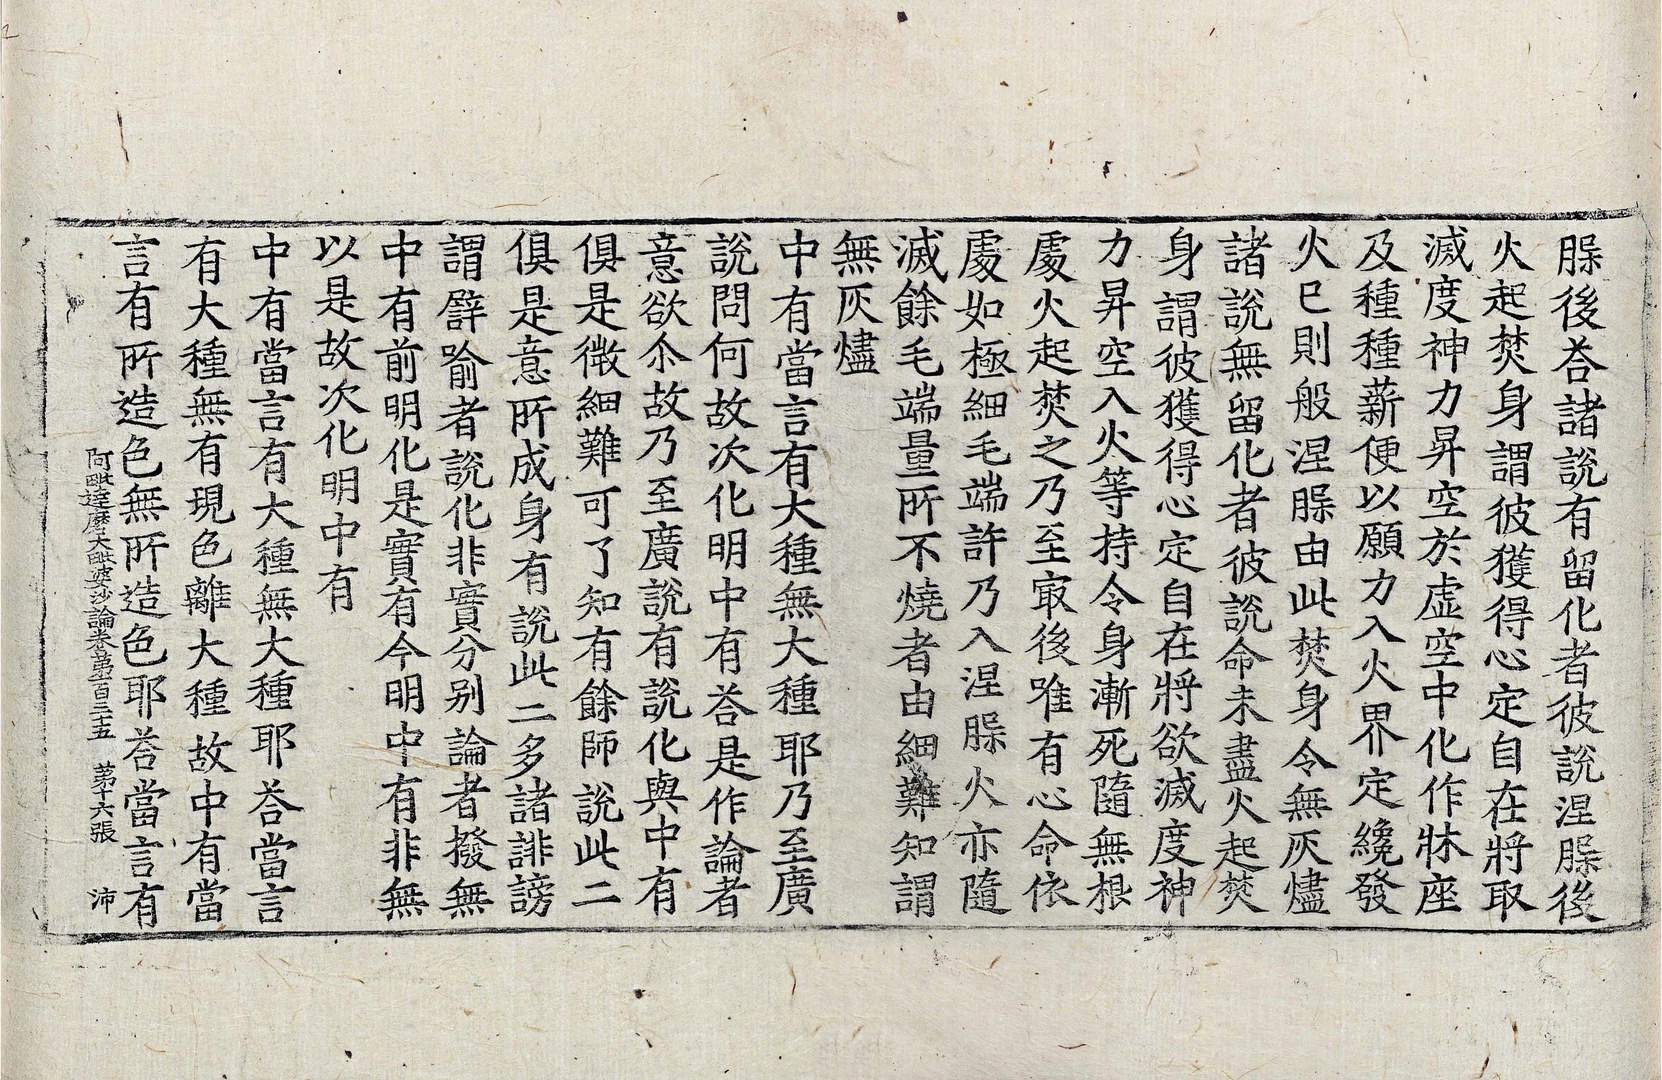 腂後荅諸說有留化者彼說涅腂後
火起焚身謂彼獲得心定自在將取
滅度神力昇空於虛空中化作牀座
及種種薪便以願力入火界定纔發
火已則般涅腂由此焚身令無灰燼
諸說無留化者彼說命未盡火起焚
身謂彼獲得心定自在將欲滅度神
力昇空入火等持令身漸死隨無根
處火起焚之乃至㝡後唯有心命依
處如極細毛端許乃入涅腂火亦隨
滅餘毛端量所不燒者由細難知謂
無灰燼
中有當言有大種無大種耶乃至廣
說問何故次化明中有荅是作論者
意欲尒故乃至廣說有說化與中有
俱是微細難可了知有餘師說此二
俱是意所成身有說此二多諸誹謗
謂譬喻者說化非實分别論者撥無
中有前明化是實有今明中有非無
以是故次化明中有
中有當言有大種無大種耶荅當言
有大種無有現色離大種故中有當
言有所造色無所造色耶荅當言有
阿毗達磨大毗婆沙論卷第一百三十五　第十六張　沛